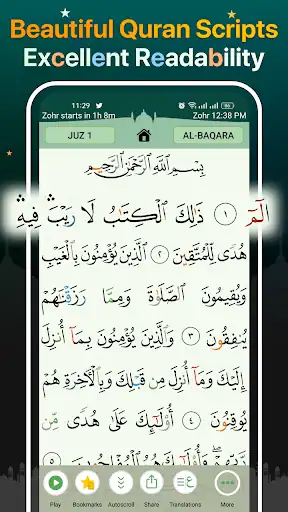 Beautiful Quran Scripts
Excellent Readability
11:29
Zohr starts in 1h 8m
Zohr 12:38 PM
JUZ 1
AL-BAQARA
بِسْمِ ٱللَّهِ ٱلرَّحْمَٰنِ ٱلرَّحِيمِ
الٓمٓ ١ ذَٰلِكَ ٱلْكِتَٰبُ لَا رَيْبَۛ فِيهِۛ
هُدًى لِّلْمُتَّقِينَ ٢ ٱلَّذِينَ يُؤْمِنُونَ بِٱلْغَيْبِ
وَيُقِيمُونَ ٱلصَّلَوٰةَ وَمِمَّا رَزَقْنَٰهُمْ
يُنفِقُونَ ٣ وَٱلَّذِينَ يُؤْمِنُونَ بِمَآ أُنزِلَ
إِلَيْكَ وَمَآ أُنزِلَ مِن قَبْلِكَ وَبِٱلْءَاخِرَةِ هُمْ
يُوقِنُونَ ٤ أُو۟لَٰٓئِكَ عَلَىٰ هُدًى مِّن
رَّبِّهِمْ وَأُو۟لَٰٓئِكَ هُمُ ٱلْمُفْلِحُونَ ٥
Play
Bookmarks
Autoscroll
Share
Translations
More